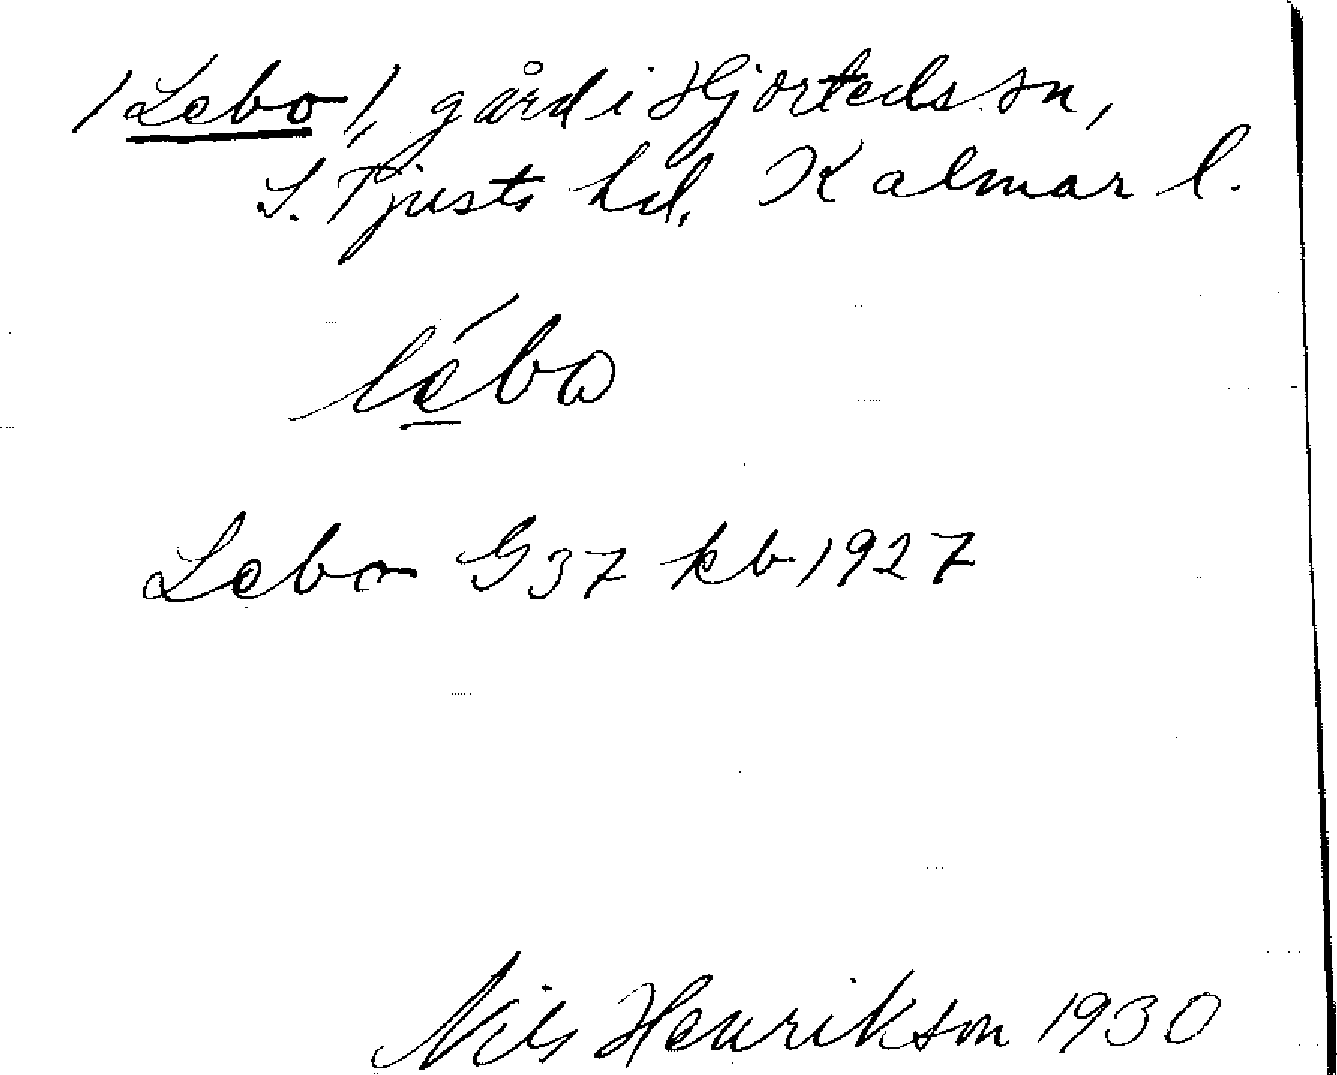 /Lebo/, gård i Hjorteds sn,
S. Tjusts hd, Kalmar l.
lébω
Lebo G37 kb 1927
Nils Henrikson 1930